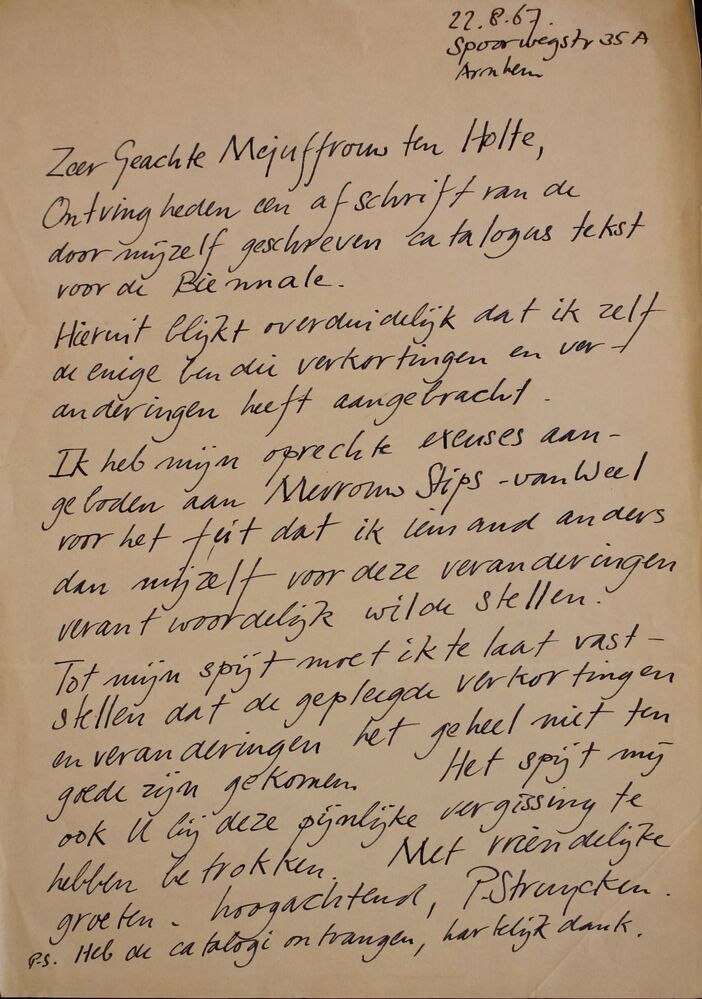 22.8.67.
Spoorwegstr 35 A
Arnhem
Zeer Geachte Mejuffrouw ten Holte,
Ontving heden een afschrift van de
door mijzelf geschreven catalogus tekst
voor de Biennale.
Hieruit blijkt overduidelijk dat ik zelf
de enige ben die verkortingen en ver-
anderingen heeft aangebracht.
Ik heb mijn oprechte excuses aan-
geboden aan Mevrouw Stips-van Weel
voor het feit dat ik iemand anders
dan mijzelf voor deze veranderingen
verantwoordelijk wilde stellen.
Tot mijn spijt moet ik te laat vast-
stellen dat de gepleegde verkortingen
en veranderingen het geheel niet ten
goede zijn gekomen. Het spijt mij
ook U bij deze pijnlijke vergissing te
hebben betrokken. Met vriendelijke
groeten. hoogachtend, P.Struycken.
P-S. Heb de catalogi ontvangen, hartelijk dank.